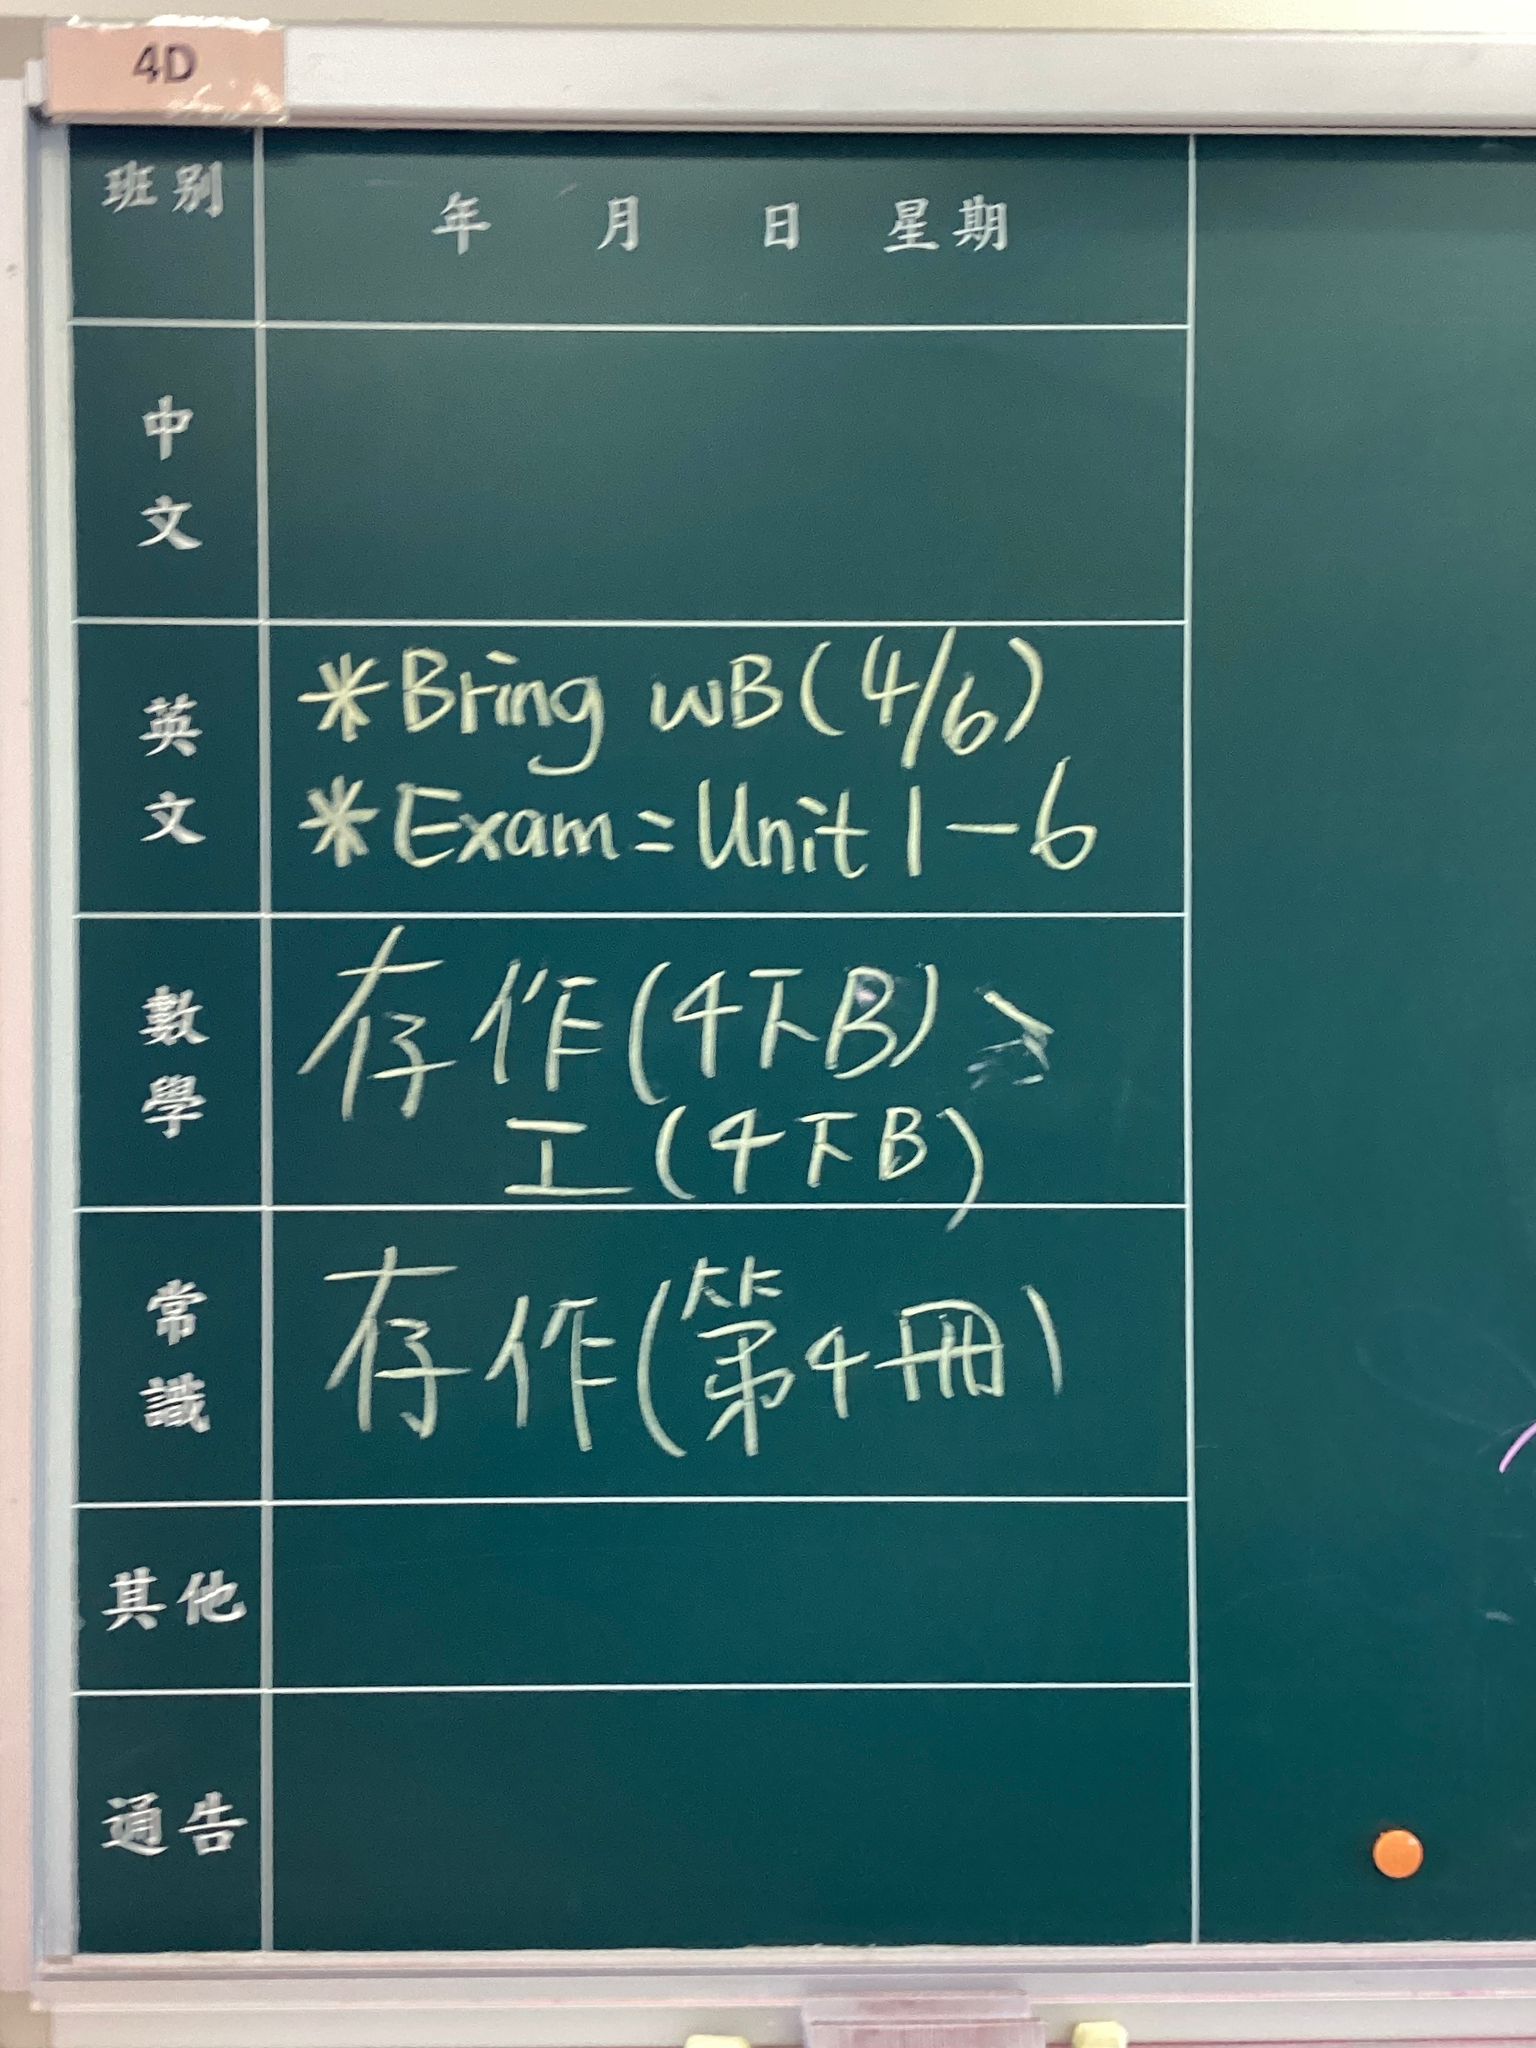 4D
班別 年 月 日 星期
中文
英文
*Bring WB(4/6)
*Exam=Unit 1-6
數學
存作(4下B)
工(4下B)
常識
存作(第4冊)
其他
通告